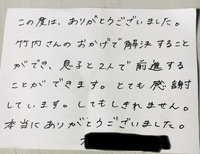 この度は、ありがとうございました。
竹内さんのおかげで解決すること
ができ、息子と2人で前進する
ことができます。とても感謝
しています。してもしきれません。
本当にありがとうございました。